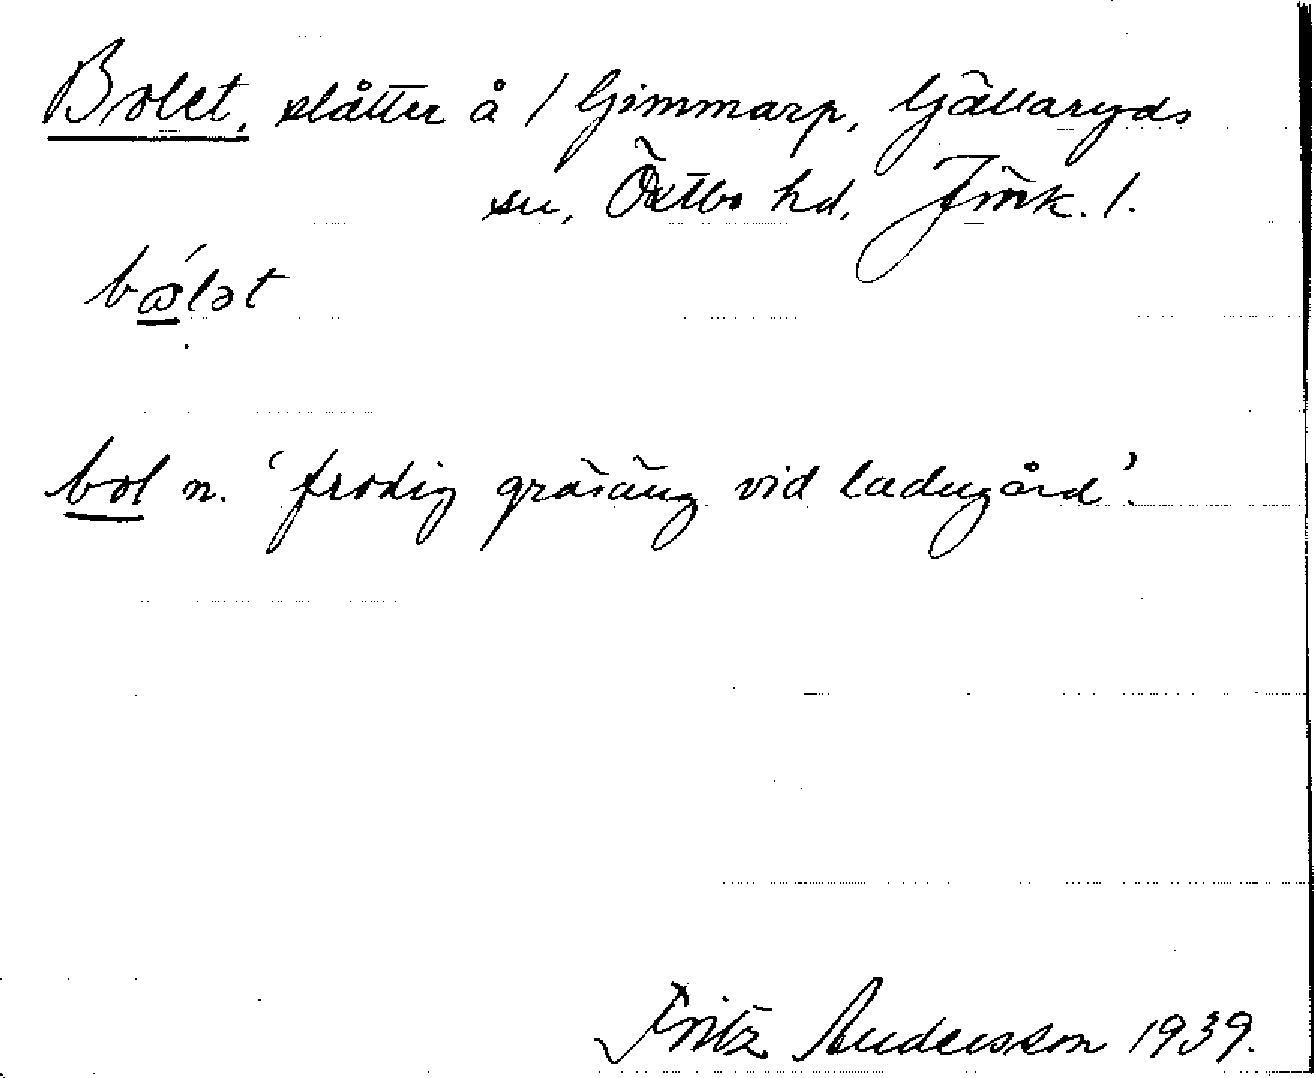 Bolet, slåtter å 1 Gimmarp, Gällaryds
sn, Östbo hd, Jmk. l.
bǿlət
bol n. 'frodig gräsäng vid ladugård'.
Fritz Andersson 1939.